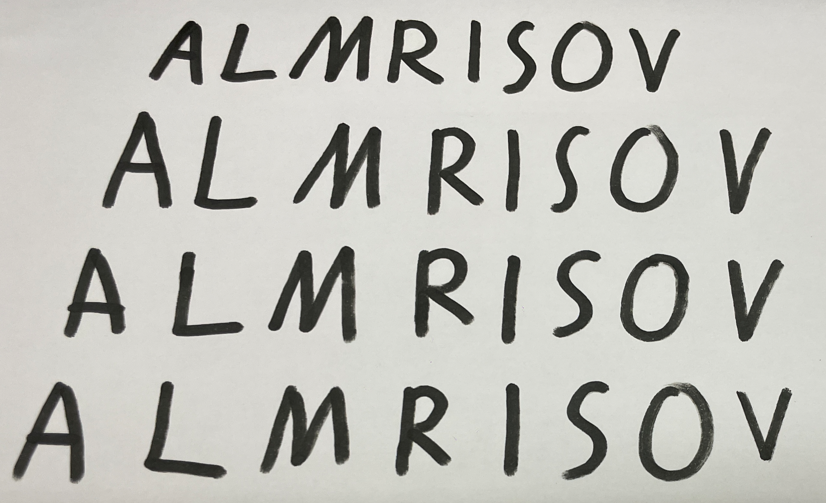 ALMRISOV
AL MRISO V
A L M R I S O V
A L M R I S O V